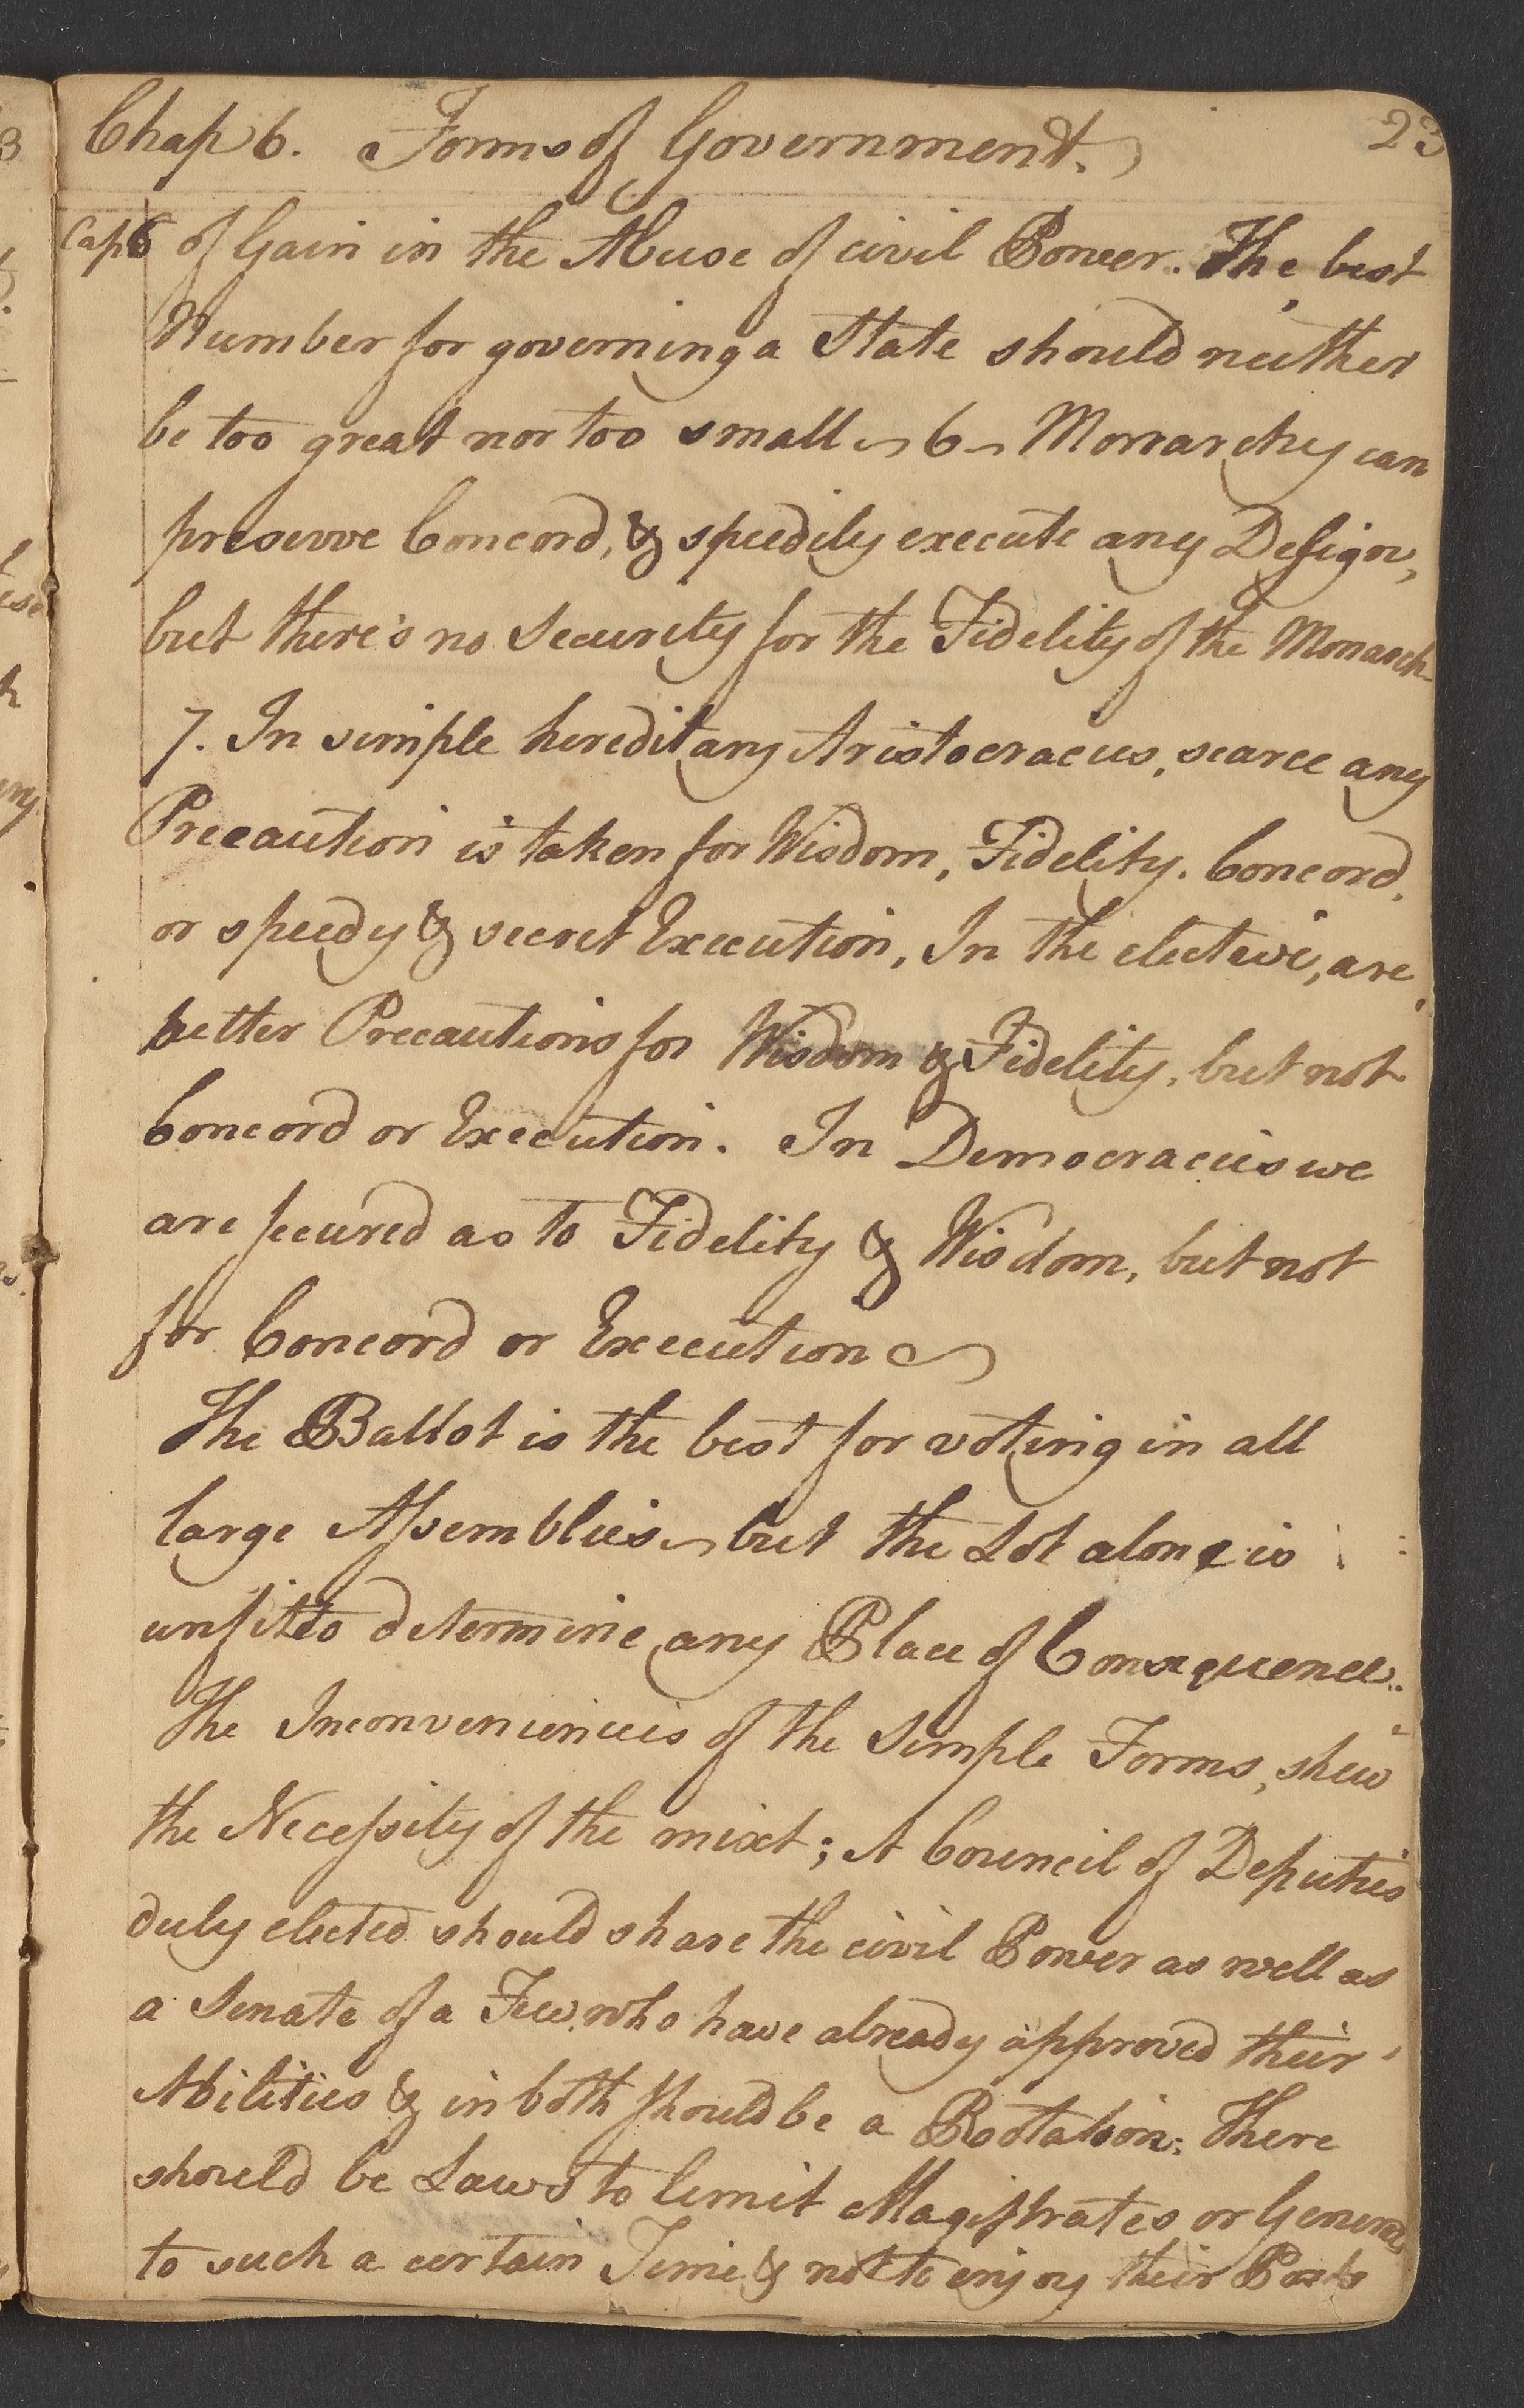 Chap 6. Forms of Government. 23
Cap 6 of Gain in the Abuse of civil Power. The best
Number for governing a State should neither
be too great nor too small 6 Monarchy can
preserve Concord, & speedily execute any Design,
but there's no Security for the Fidelity of the Monarch
7. In simple hereditary Aristocracies, scarce any
Precaution is taken for Wisdom, Fidelity. Concord,
or speedy & secret Execution, In the elective, are
better Precautions for Wisdom & Fidelity, but not
Concord or Execution. In Democracies we
are secured as to Fidelity & Wisdom, but not
for Concord or Execution
The Ballot is the best for voting in all
large Assemblies but the Lot alone is
unfit to determine any Place of Consequence.
The Inconveniencies of the Simple Forms, shew
the Necessity of the mixt; A Council of Deputies
duly elected should share the civil Power as well as
a Senate of a Few who have already approved their
Abilities & in both should be a Rotation: There
should be Laws to limit Magistrates or Generals
to such a certain Time & not to enjoy their Posts